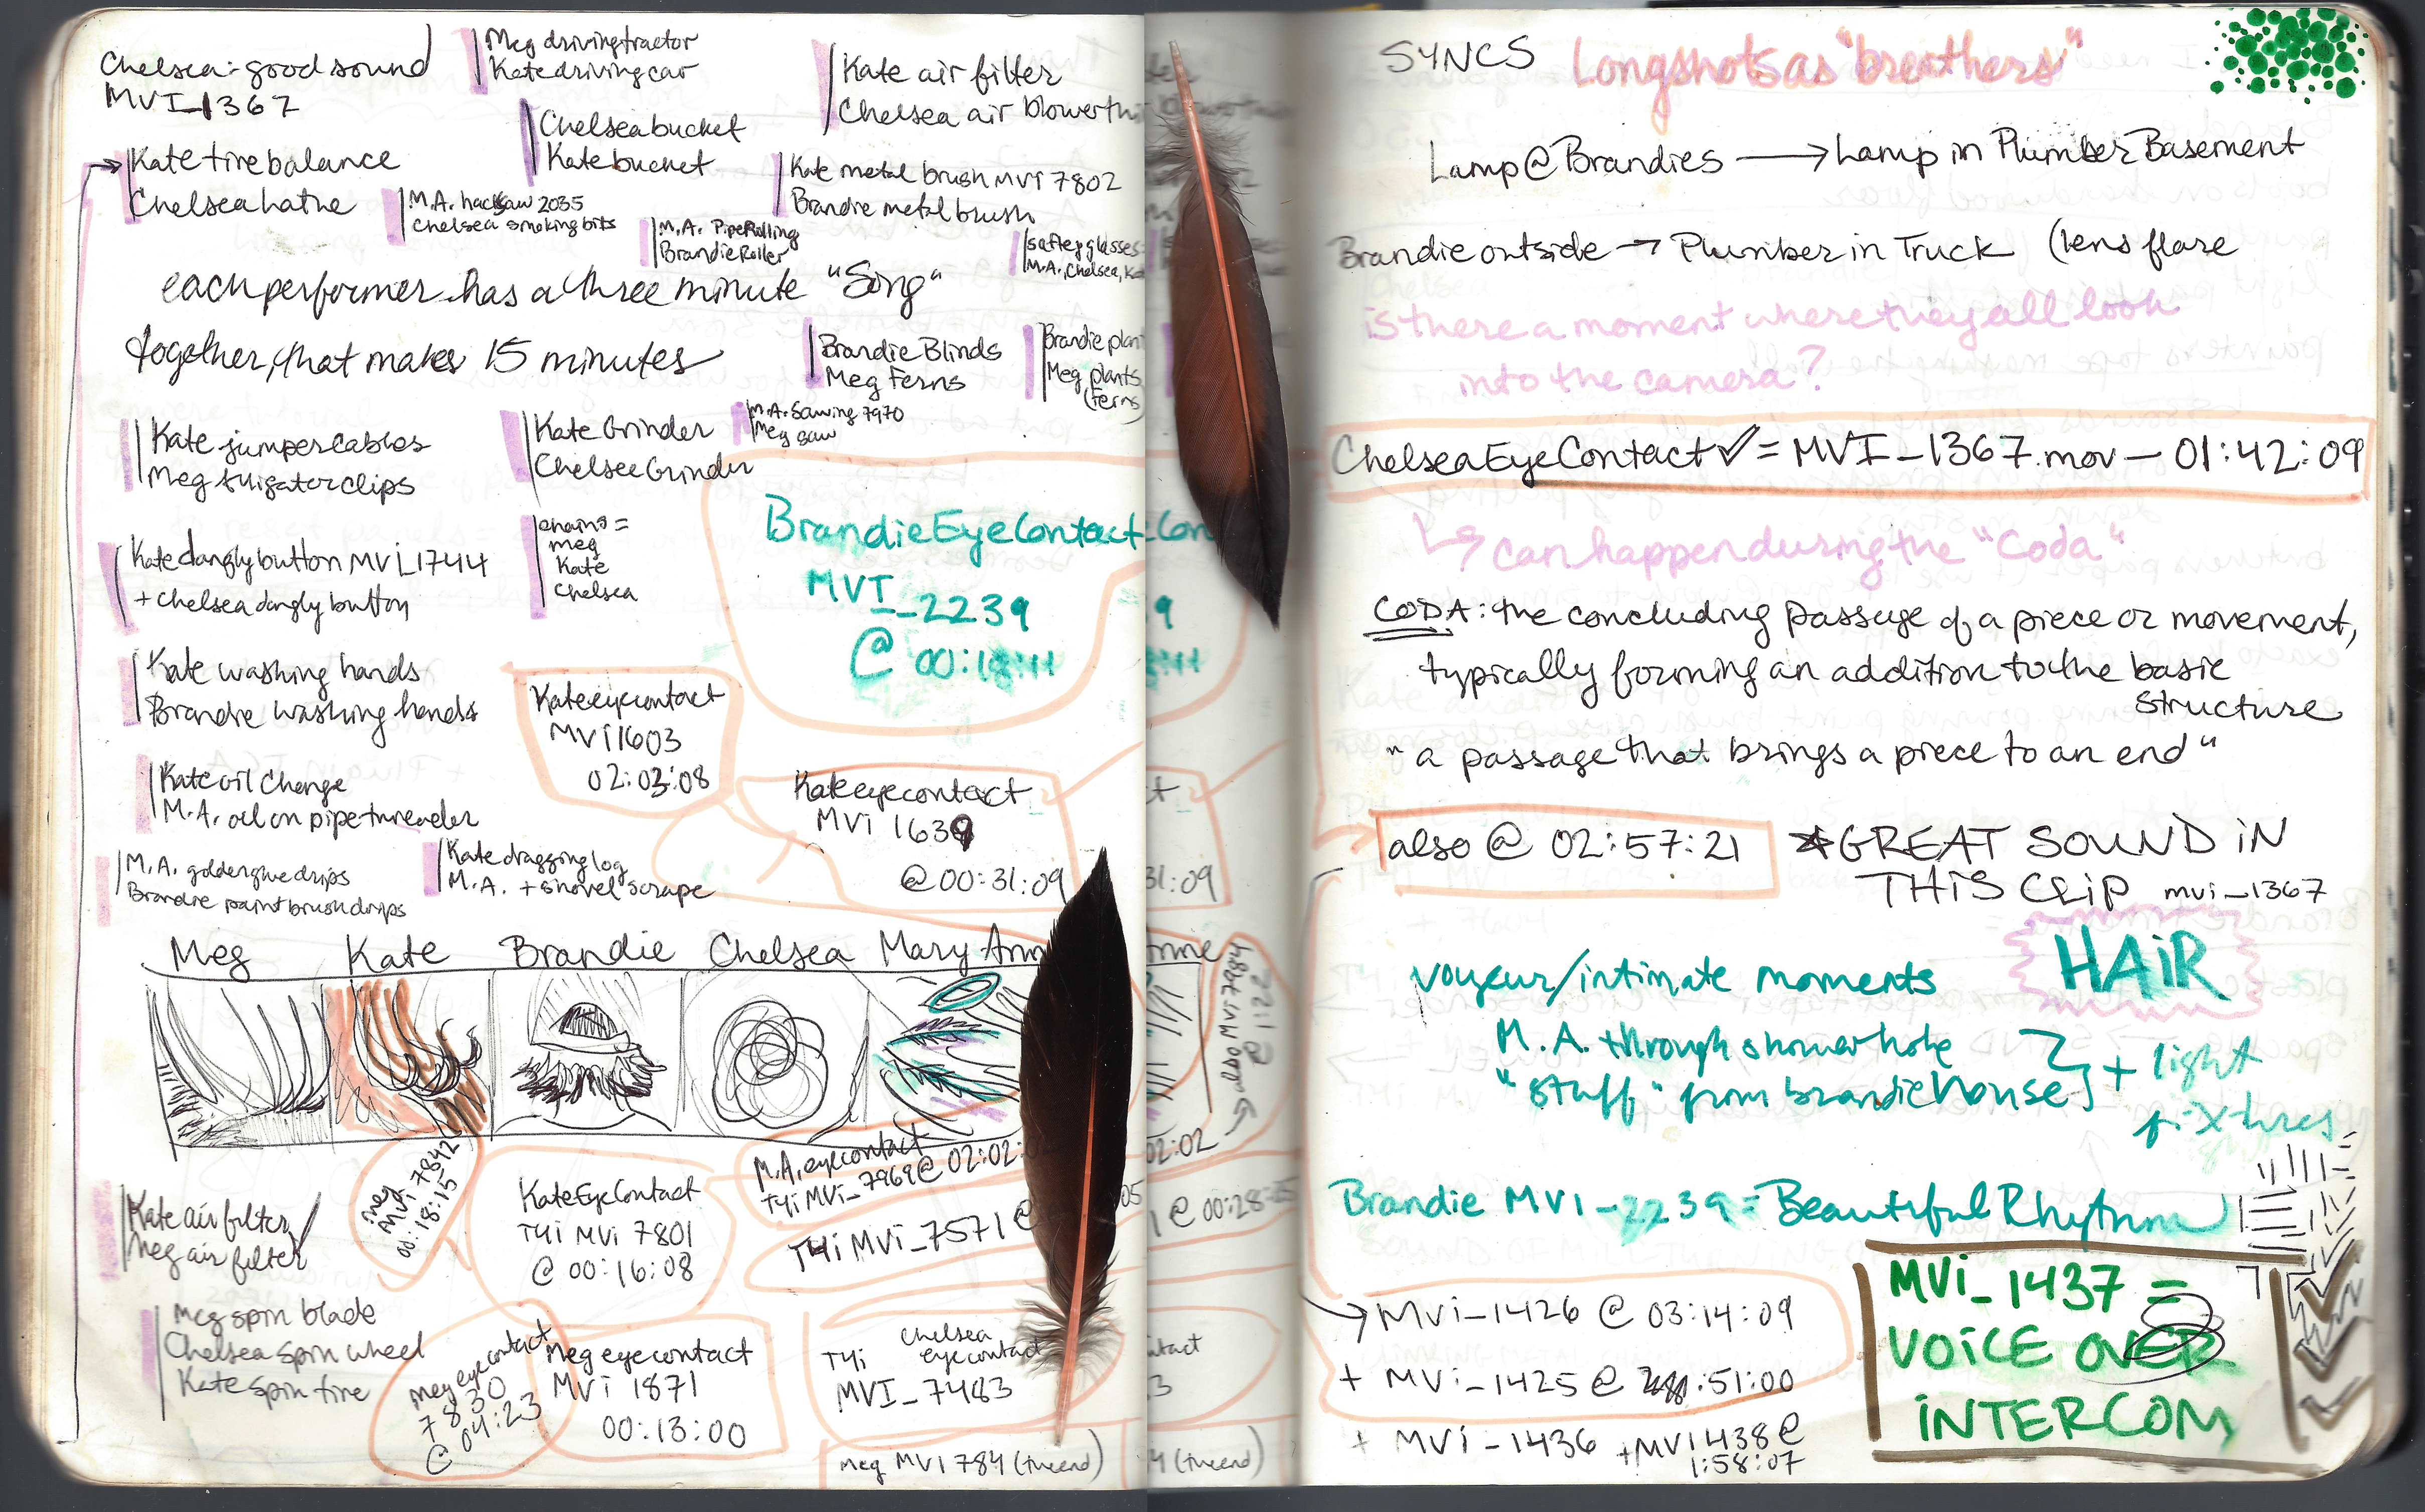 Chelsea: good sound
MVI_1367
Meg driving tractor
Kate driving car
Kate air filter
Chelsea air blower thi
Chelsea bucket
Kate bucket
Kate tire balance
Chelsea lathe
M.A. hacksaw 2035
Chelsea smoking bits
Kate metal brush MVI 7802
Brandie metal brush
M.A. Pipe Rolling
Brandie Roller
safety glasses
M.A., Chelsea, Ka
each performer has a three minute "Song"
together, that makes 15 minutes
Brandie Blinds
Meg Ferns
Brandie plan
Meg plants
(ferns)
Kate jumper cables
Meg alligator clips
Kate Grinder
Chelsee Grinder
M.A. Sawing 7970
Meg saw
Kate dangly button MVI_1744
+ Chelsea dangly button
chains =
meg
Kate
Chelsea
Brandie Eye Contact
MVI_2239
@ 00:18:41
Kate washing hands
Brandie washing hands
Kate eye contact
MVi 1603
02:03:08
Kate oil Change
M.A. oil on pipe threader
Kate eye contact
MVi 1639
@ 00:31:09
M.A. golden glue drips
Brandie paint brush drips
Kate dragging log
M.A. + shovel scrape
Meg Kate Brandie Chelsea Mary Ann
also MVI 7984
Kate air filter
Meg air filter
meg
MVI 7842
00:18:15
Kate Eye Contact
T4i MVi 7801
@ 00:16:08
M.A. eye contact
T4i MVi_7969 @ 02:02:02
T4i MVi_7571 @ 00:28:25
Meg spin blade
Chelsea spin wheel
Kate spin tire
meg eye contact
7830
@ 04:23
Meg eye contact
MVi 1871
00:13:00
Chelsea
T4i eye contact
MVI_7483
Meg MVI 784 (the end)
SYNCS Longshots as "breathers"
Lamp @ Brandies → Lamp in Plumber Basement
Brandie outside → Plumber in Truck (lens flare
is there a moment where they all look
into the camera?
Chelsea Eye Contact ✓ = MVI_1367.mov — 01:42:09
↳ can happen during the "Coda"
CODA: the concluding passage of a piece or movement,
typically forming an addition to the basic
structure
"a passage that brings a piece to an end"
also @ 02:57:21 *GREAT SOUND iN
THiS CLiP mvi_1367
HAiR
voyeur/intimate moments
M.A. through shower hole
"stuff" from brandie house } + light
fixtures
Brandie MVI_2239 = Beautiful Rhythm
→ MVi_1426 @ 03:14:09
+ MVi_1425 @ :51:00
+ MVi_1436 + MVI 1438 @
1:58:07
MVi_1437 =
VOiCE OVER
iNTERCOM